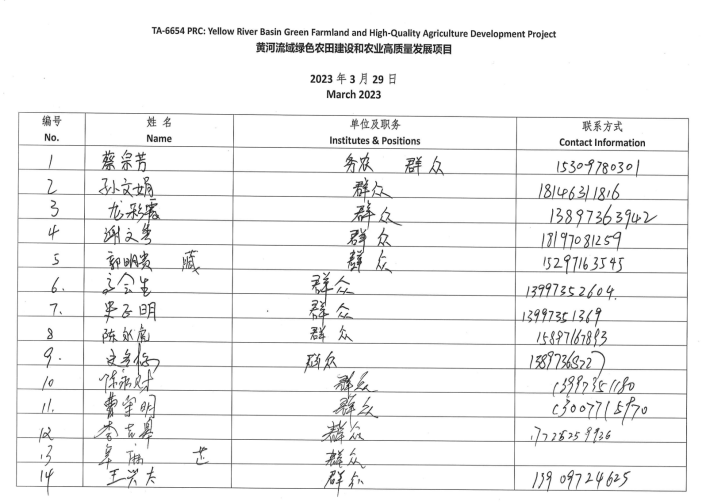 TA-6654 PRC: Yellow River Basin Green Farmland and High-Quality Agriculture Development Project
黄河流域绿色农田建设和农业高质量发展项目
2023 年 3 月 29 日
March 2023
编号 姓 名 单位及职务 联系方式
No. Name Institutes & Positions Contact Information
1 蔡宗芳 务农 群众 15309780301
2 孙文娟 群众 18146311816
3 龙彩霞 群众 13897363942
4 谢文 群众 18197081259
5 郭明贵 藏 群众 15297163545
6. 会生 群众 13997352604.
7. 吴子明 群众 13997351369
8 陈永虎 群众 15897167893
9. 群众
10 陈 财 群众 13997351180
11. 曹宗明 群众 13007715970
12 李 群众 17726259936
13 群众
14 王兴大 群众 13909724625